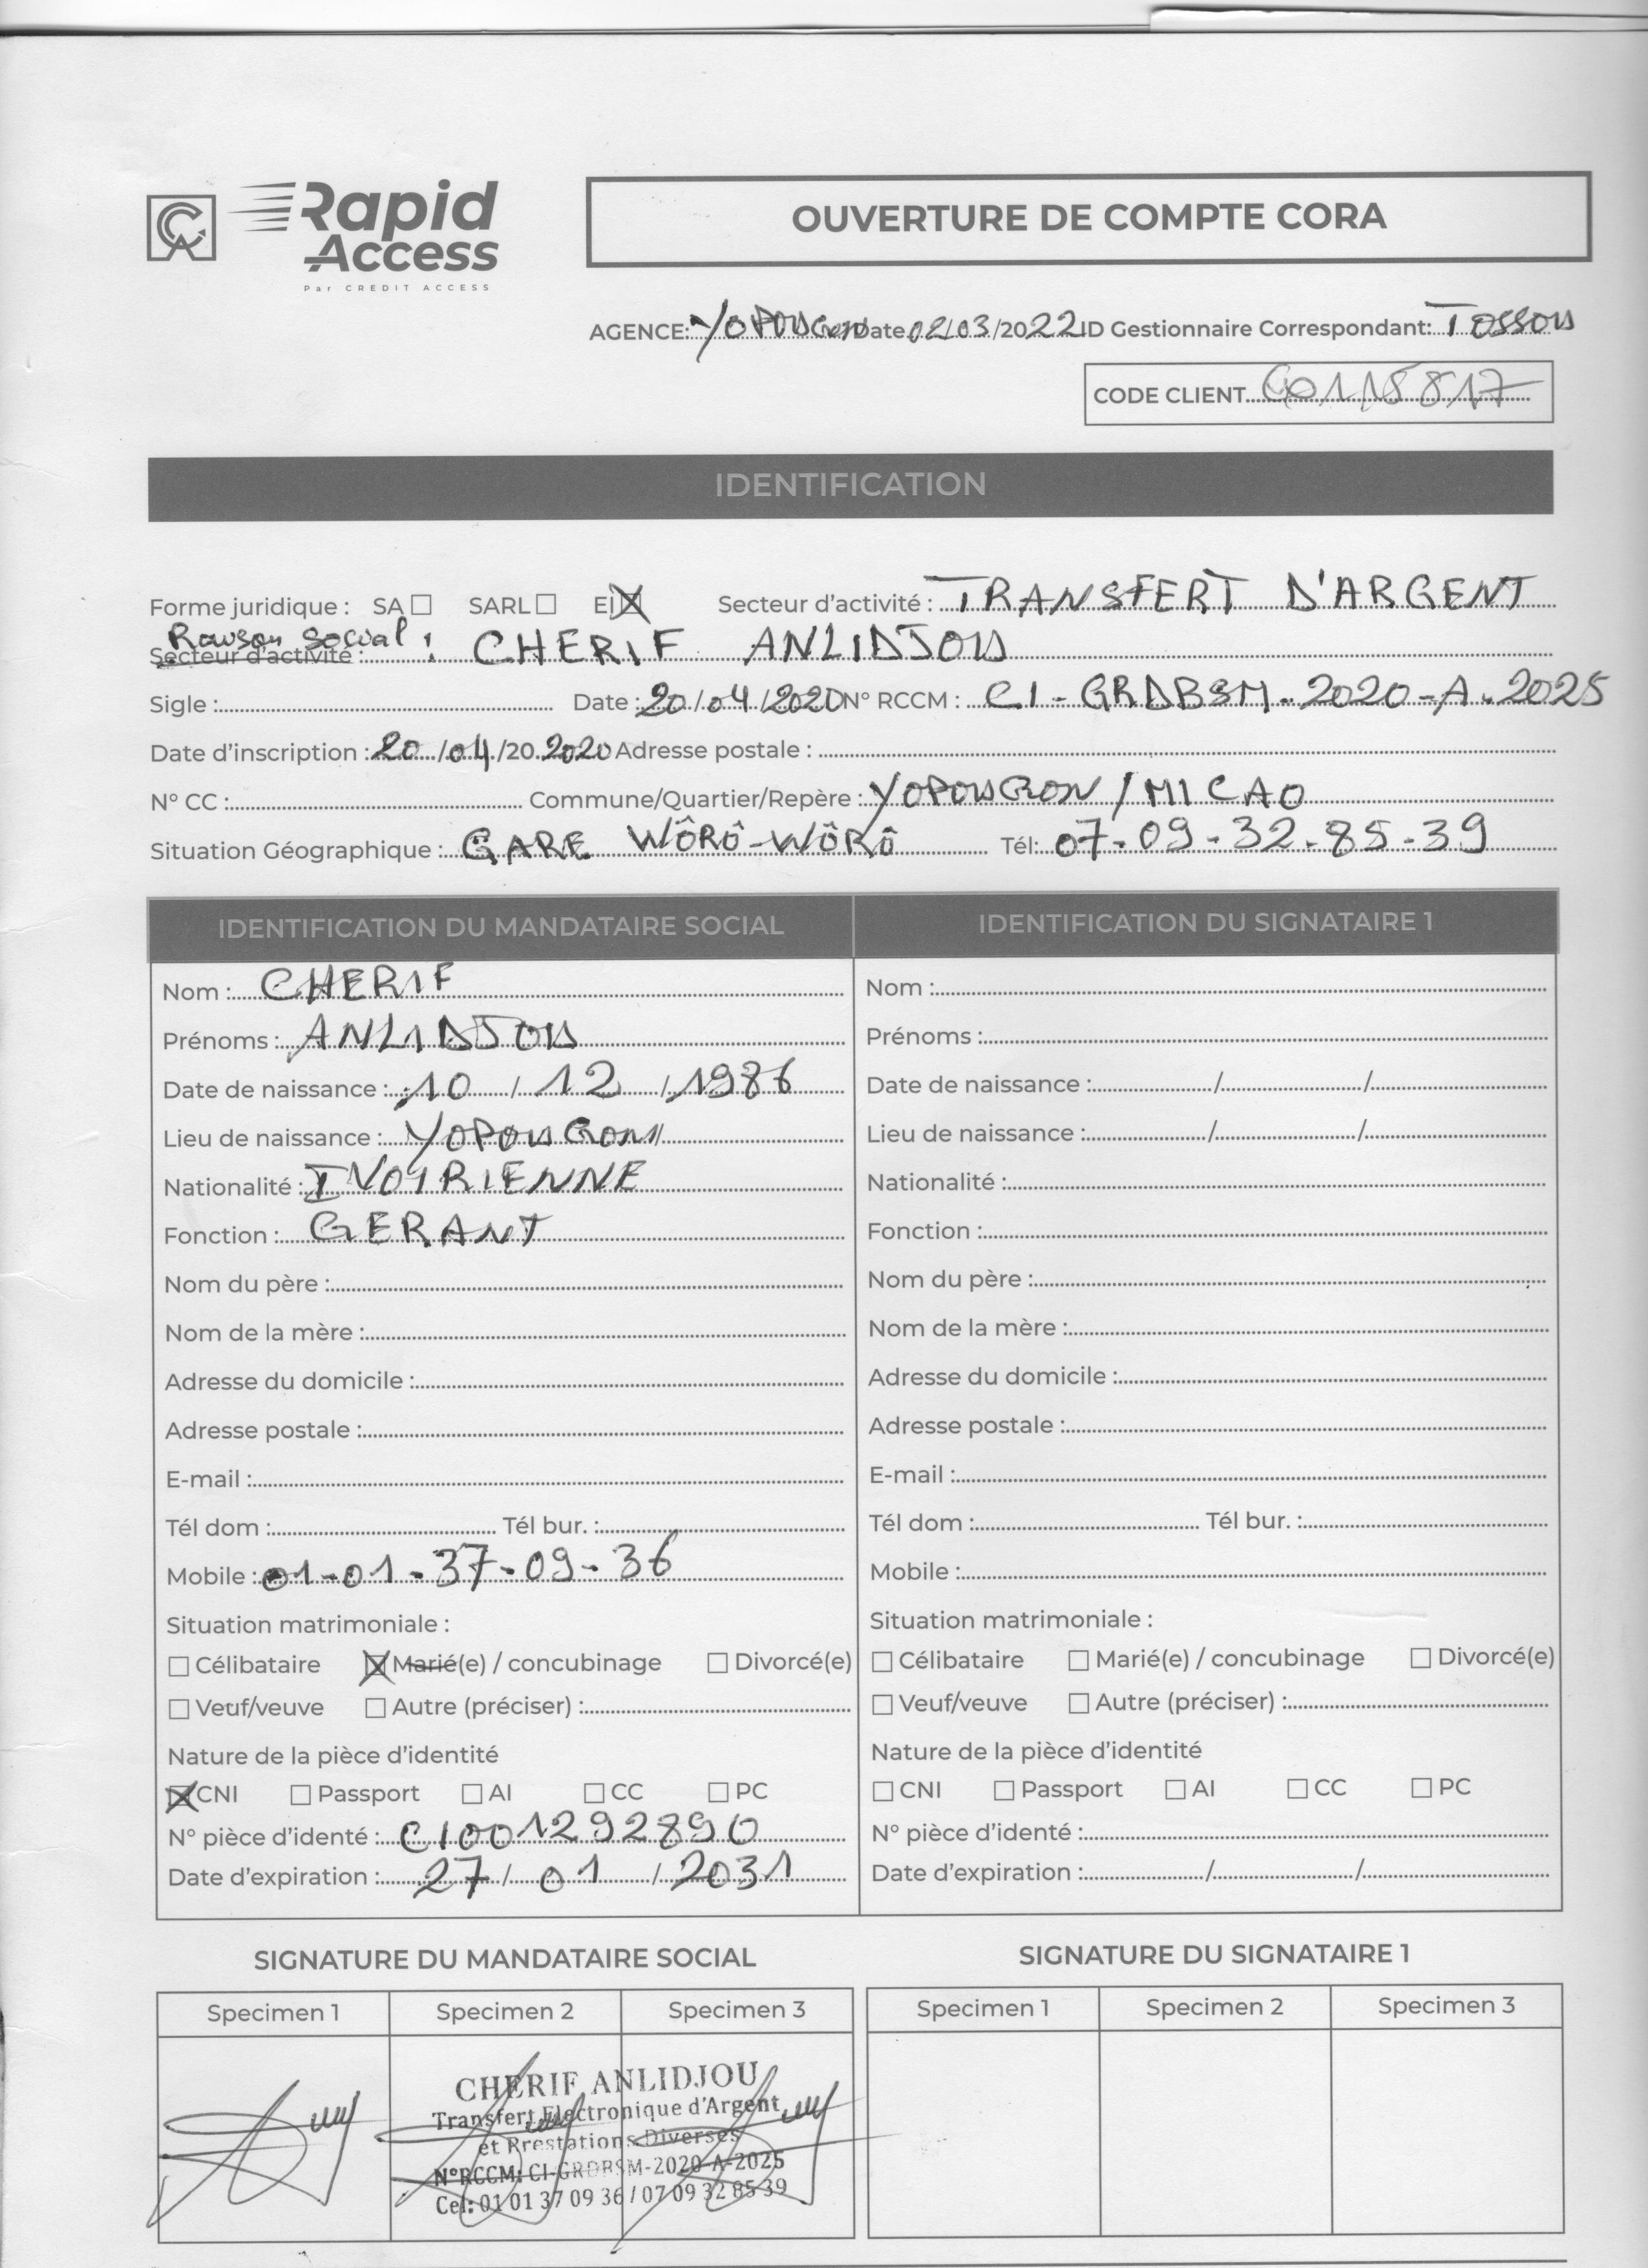 Rapid
Access
Par CREDIT ACCESS
OUVERTURE DE COMPTE CORA
AGENCE: YOPOUGON Date 02/03/2022 ID Gestionnaire Correspondant: TOSSOU
CODE CLIENT
IDENTIFICATION
Forme juridique : SA SARL EI Secteur d'activité : TRANSFERT D'ARGENT
Raison social :
Secteur d'activité : CHERIF ANLIDJOU
Sigle : Date : 20/04/2020 N° RCCM : CI-GRDBSM-2020-A-2025
Date d'inscription : 20/04/20 2020 Adresse postale :
N° CC : Commune/Quartier/Repère : YOPOUGON / MICAO
Situation Géographique : GARE WÔRÔ-WÔRÔ Tél: 07-09-32-85-39
IDENTIFICATION DU MANDATAIRE SOCIAL
Nom : CHERIF
Prénoms : ANLIDJOU
Date de naissance : 10 / 12 / 1986
Lieu de naissance : YOPOUGON
Nationalité : IVOIRIENNE
Fonction : GERANT
Nom du père :
Nom de la mère :
Adresse du domicile :
Adresse postale :
E-mail :
Tél dom : Tél bur. :
Mobile : 01-01-37-09-36
Situation matrimoniale :
Célibataire Marié(e) / concubinage Divorcé(e)
Veuf/veuve Autre (préciser) :
Nature de la pièce d'identité
CNI Passport AI CC PC
N° pièce d'identé : CI001292890
Date d'expiration : 27 / 01 / 2031
IDENTIFICATION DU SIGNATAIRE 1
Nom :
Prénoms :
Date de naissance : / /
Lieu de naissance : / /
Nationalité :
Fonction :
Nom du père :
Nom de la mère :
Adresse du domicile :
Adresse postale :
E-mail :
Tél dom : Tél bur. :
Mobile :
Situation matrimoniale :
Célibataire Marié(e) / concubinage Divorcé(e)
Veuf/veuve Autre (préciser) :
Nature de la pièce d'identité
CNI Passport AI CC PC
N° pièce d'identé :
Date d'expiration : / /
SIGNATURE DU MANDATAIRE SOCIAL
Specimen 1 Specimen 2 Specimen 3
CHERIF ANLIDJOU
Transfert Electronique d'Argent
et Prestations Diverses
N°RCCM: CI-GRDBSM-2020-A-2025
Cel: 01 01 37 09 36 / 07 09 32 85 39
SIGNATURE DU SIGNATAIRE 1
Specimen 1 Specimen 2 Specimen 3